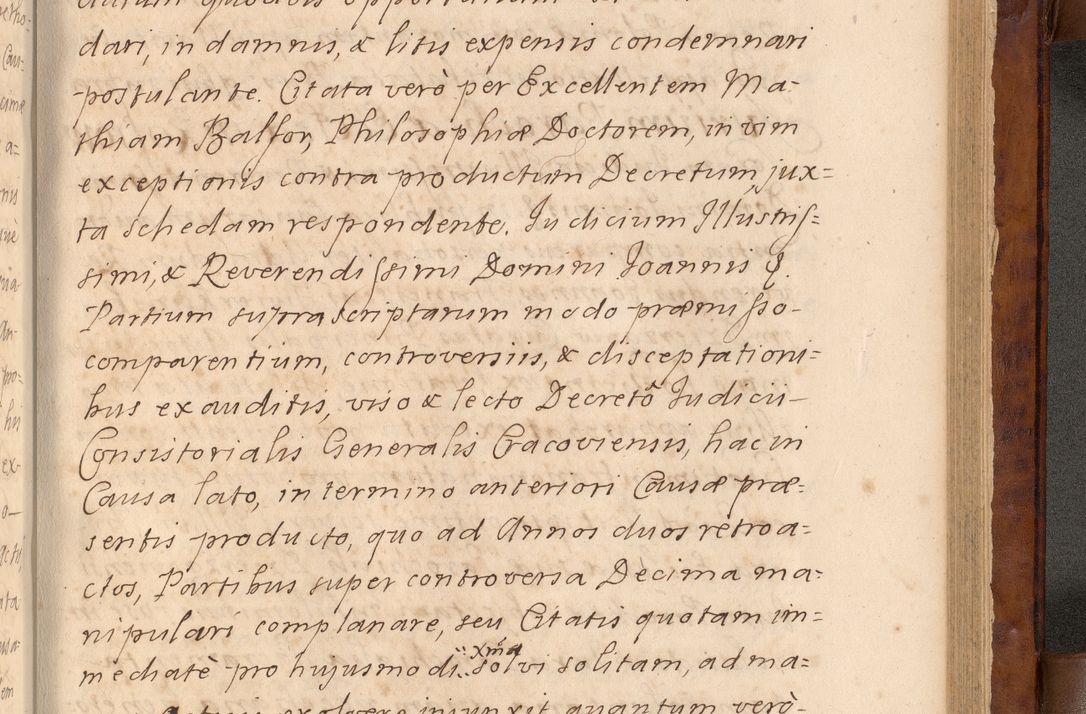 dari, in damnis, & litis expensis condemnari
postulante. Citata verò per Excellentem Ma-
thiam Balsor, Philosophiæ Doctorem, in vim
exceptionis contra productum Decretum, jux=
ta schedam respondente. Judicium Illustris=
simi, & Reverendissimi Domini Joannis
Partium suprascriptarum modo præmisso-
comparentium, controversiis, & disceptationi=
bus exauditis, viso & lecto Decretô Judicii-
Consistorialis Generalis Cracoviensis, hac in
Causa lato, in termino anteriori Causæ præ=
sentis producto, quo ad Annos duos retroa=
ctos, Partibus super controversa Decima ma=
nipulari complanare, seu Citatis quotam im=
xma
mediatè pro hujusmodi solvi solitam, ad ma=
exolvere injunxit, quantum verò-